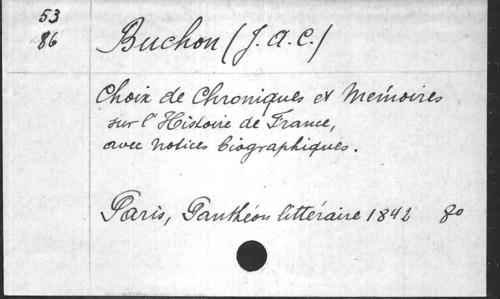 53
86
Buchon (J. A. C.)
Choix de Chroniques et Mémoires
sur l'Histoire de France,
avec notices biographiques.
Paris, Panthéon littéraire 1842 8o